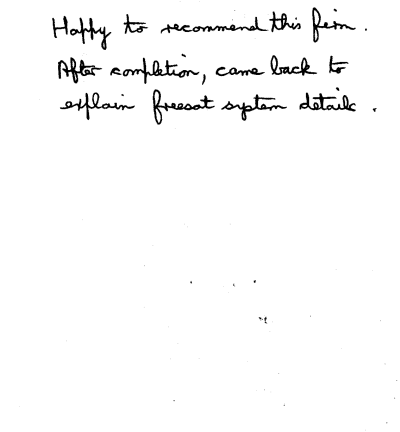 Happy to recommend this firm.
After completion, came back to
explain freesat system details.